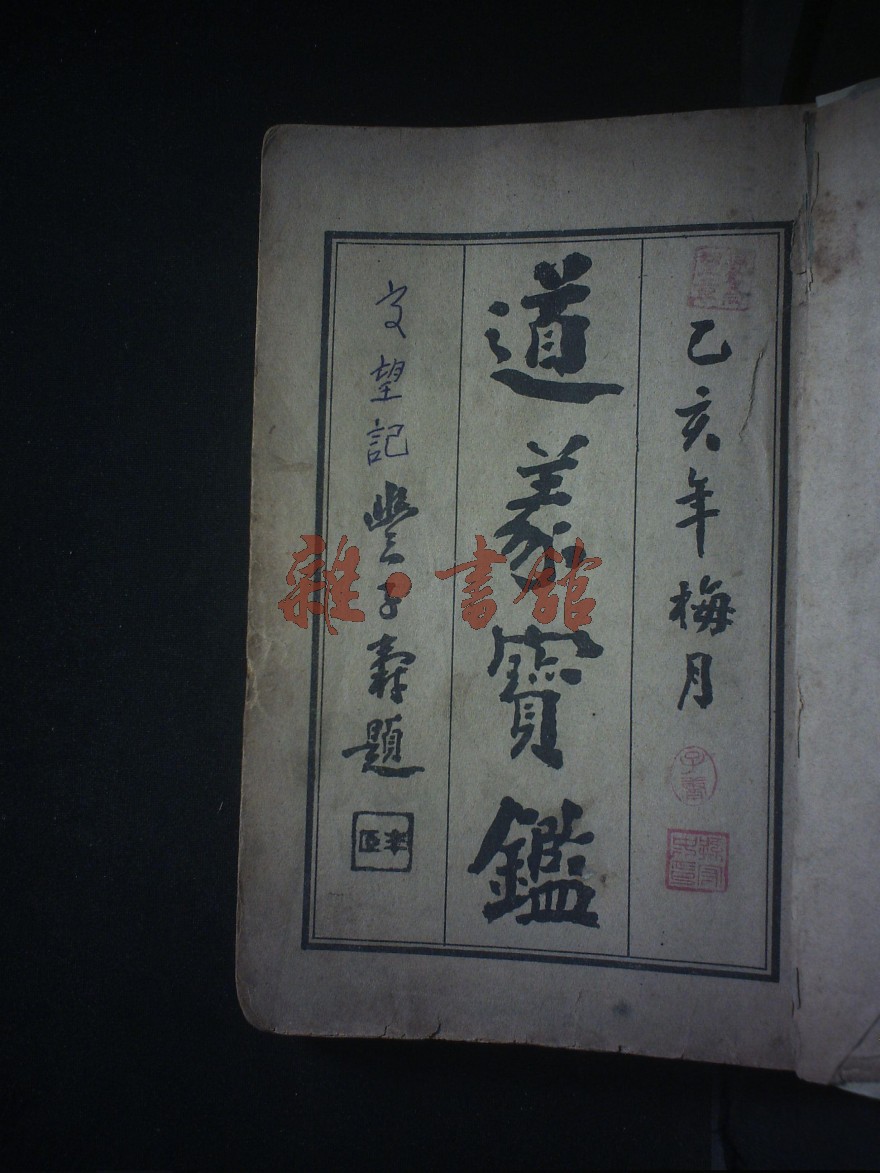 乙亥年梅月
道義寶鑑
文望記
子壽題
雜·書館